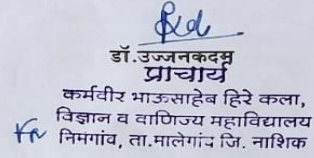 डॉ.उज्जनकदम
प्राचार्य
कर्मवीर भाऊसाहेब हिरे कला,
विज्ञान व वाणिज्य महाविद्यालय
निमगांव, ता.मालेगांव जि. नाशिक